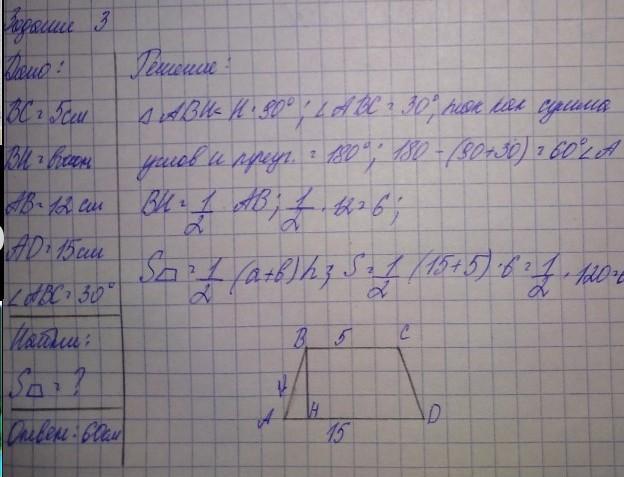 Задание 3
Дано:
BC = 5см
BH = высот
AB = 12 см
AD = 15см
∠ABC = 30°
Найти:
S⏢ = ?
Ответ: 60см
Решение:
△ ABH < H = 90°; ∠ABC = 30°, так как сумма
углов и треуг. = 180°; 180 - (90+30) = 60° ∠A
BH = 1/2 AB; 1/2 · 12 = 6;
S⏢ = 1/2 (a+b) h; S = 1/2 (15+5) · 6 = 1/2 · 120 = 6
B 5 C
4
A H D
15